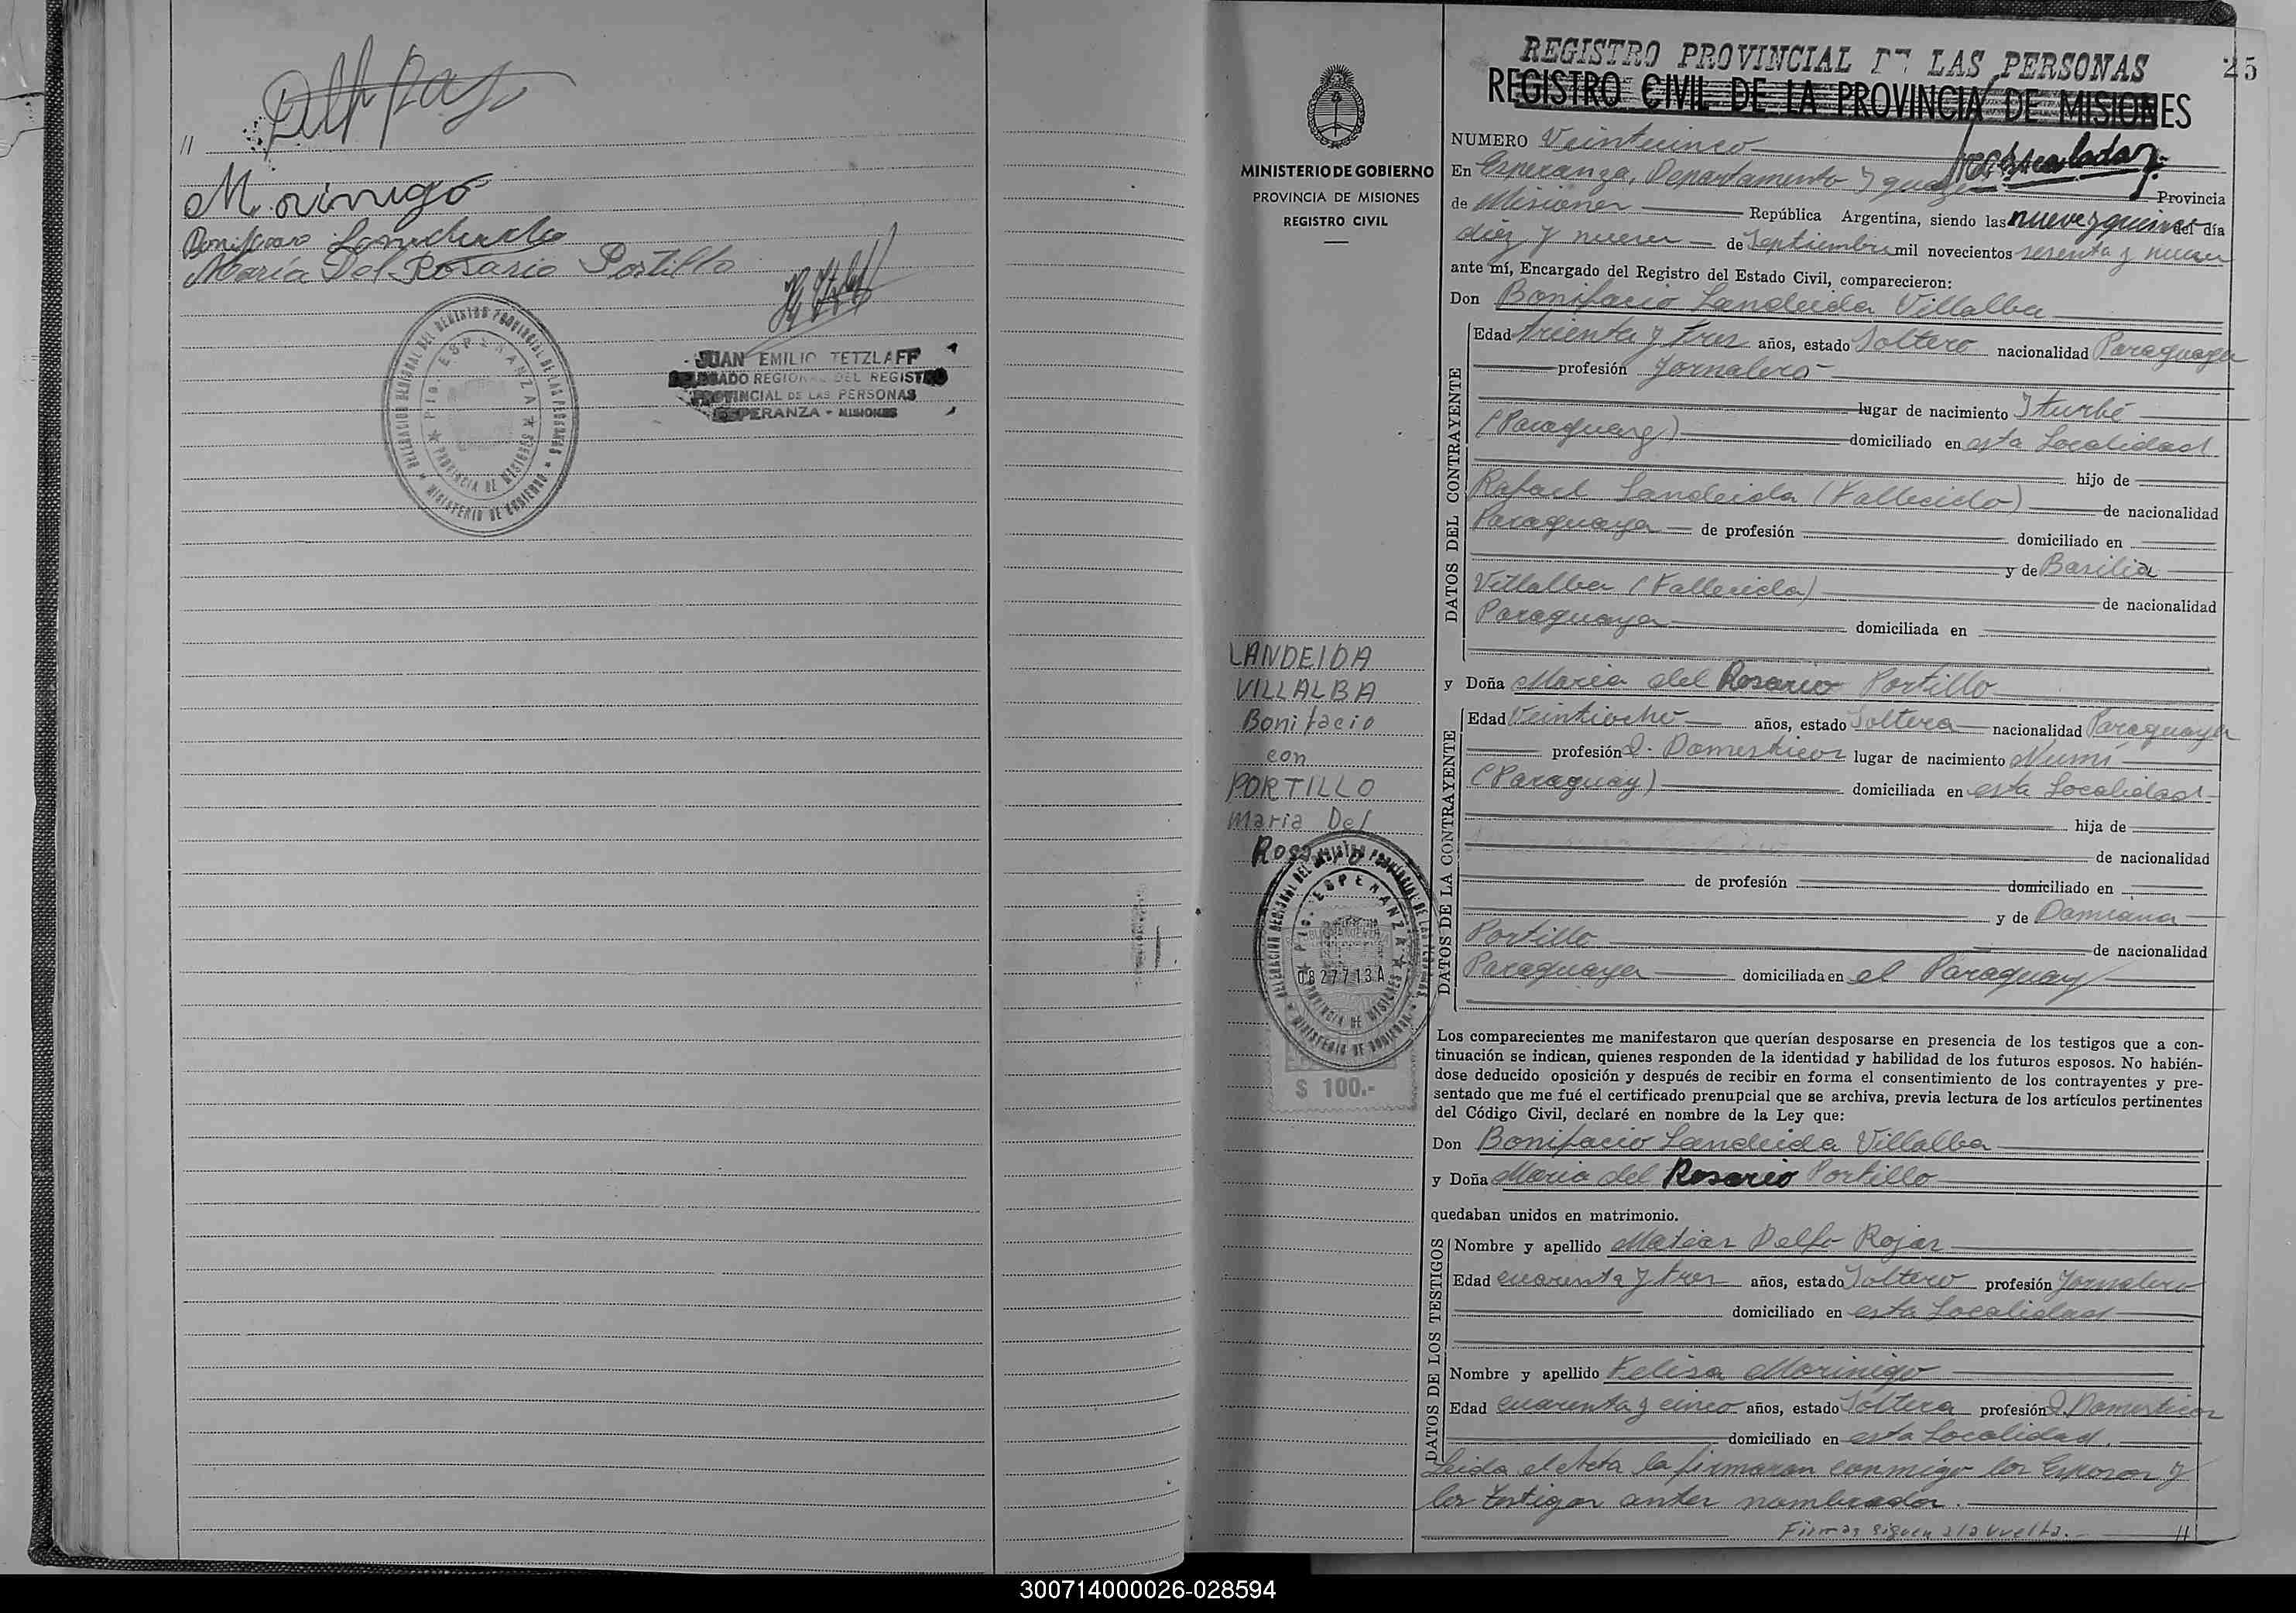 //
Morinigo
Bonifacio Landeida
Maria Del Rosario Portillo
DELEGACION REGIONAL DEL REGISTRO PROVINCIAL DE LAS PERSONAS
Pto. ESPERANZA
PROVINCIA DE MISIONES
MINISTERIO DE GOBIERNO
JUAN EMILIO TETZLAFF
DELEGADO REGIONAL DEL REGISTRO
PROVINCIAL DE LAS PERSONAS
ESPERANZA - MISIONES
MINISTERIO DE GOBIERNO
PROVINCIA DE MISIONES
REGISTRO CIVIL
LANDEIDA
VILLALBA
Bonifacio
con
PORTILLO
Maria Del
Rosario
DELEGACION REGIONAL DEL REGISTRO PROVINCIAL DE LAS PERSONAS
Pto. ESPERANZA
0827713A
PROVINCIA DE MISIONES
MINISTERIO DE GOBIERNO
$ 100.-
25
REGISTRO PROVINCIAL DE LAS PERSONAS
REGISTRO CIVIL DE LA PROVINCIA DE MISIONES
NUMERO Veinticinco
En Esperanza, Departamento Iguazú Provincia
de Misiones República Argentina, siendo las nueve y quince del día
diez y nueve de Septiembre mil novecientos sesenta y nueve
ante mí, Encargado del Registro del Estado Civil, comparecieron:
Don Bonifacio Landeida Villalba
DATOS DEL CONTRAYENTE
Edad treinta y tres años, estado Soltero nacionalidad Paraguaya
profesión Jornalero
lugar de nacimiento Iturbé
(Paraguay) domiciliado en esta Localidad
hijo de
Rafael Landeida (Fallecido) de nacionalidad
Paraguaya de profesión domiciliado en
y de Basilia
Villalba (Fallecida) de nacionalidad
Paraguaya domiciliada en
y Doña Maria del Rosario Portillo
DATOS DE LA CONTRAYENTE
Edad Veintiocho años, estado Soltera nacionalidad Paraguaya
profesión Q. Domesticos lugar de nacimiento Ñumí
(Paraguay) domiciliada en esta Localidad
hija de
de nacionalidad
de profesión domiciliado en
y de Damiana
Portillo de nacionalidad
Paraguaya domiciliada en el Paraguay
Los comparecientes me manifestaron que querían desposarse en presencia de los testigos que a con-
tinuación se indican, quienes responden de la identidad y habilidad de los futuros esposos. No habién-
dose deducido oposición y después de recibir en forma el consentimiento de los contrayentes y pre-
sentado que me fué el certificado prenupcial que se archiva, previa lectura de los artículos pertinentes
del Código Civil, declaré en nombre de la Ley que:
Don Bonifacio Landeida Villalba
y Doña Maria del Rosario Portillo
quedaban unidos en matrimonio.
DATOS DE LOS TESTIGOS
Nombre y apellido Matias Delfo Rojas
Edad cuarenta y tres años, estado Soltero profesión Jornalero
domiciliado en esta Localidad
Nombre y apellido Felisa Morinigo
Edad cuarenta y cinco años, estado Soltera profesión Q. Domesticos
domiciliado en esta Localidad.
Leida el Acta la firmaron conmigo los Esposos y
los testigos antes nombrados.
Firmas siguen a la vuelta. //
300714000026-028594